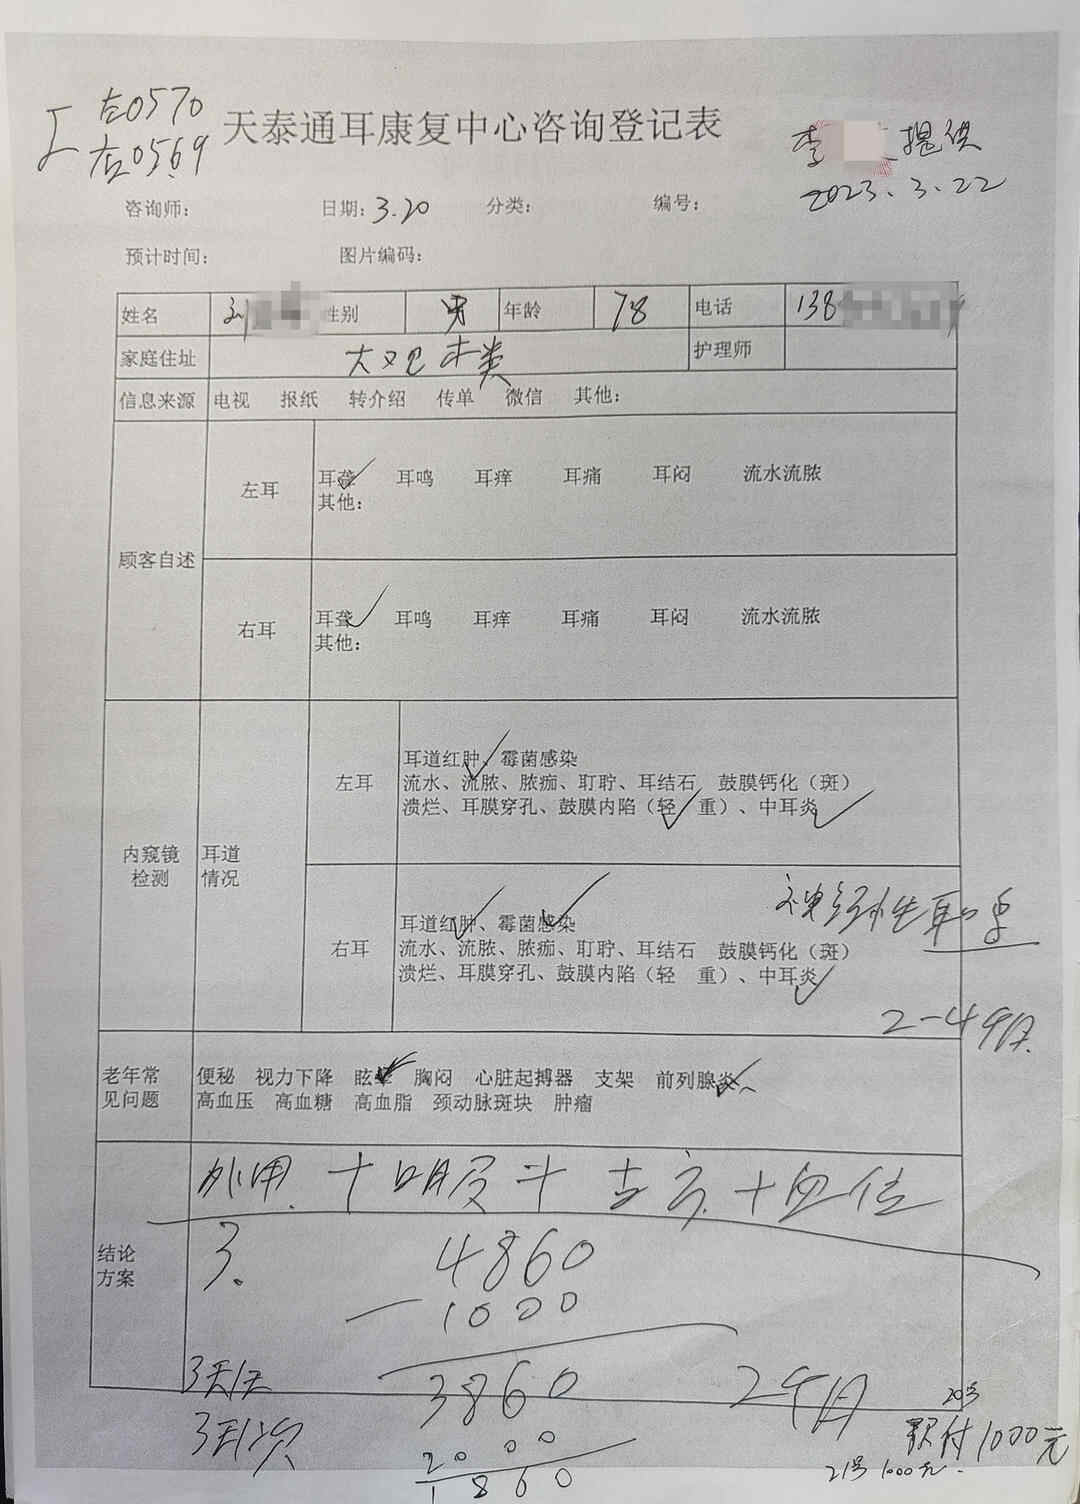 左0570
右0569
天泰通耳康复中心咨询登记表
李 提供
2023.3.22
咨询师: 日期: 3.20 分类: 编号:
预计时间: 图片编码:
姓名 性别 男 年龄 78 电话 138
家庭住址 护理师
信息来源 电视 报纸 转介绍 传单 微信 其他:
顾客自述
左耳
耳聋 耳鸣 耳痒 耳痛 耳闷 流水流脓
其他:
右耳
耳聋 耳鸣 耳痒 耳痛 耳闷 流水流脓
其他:
内窥镜检测
耳道情况
左耳
耳道红肿、霉菌感染
流水、流脓、脓痂、耵聍、耳结石 鼓膜钙化（斑）
溃烂、耳膜穿孔、鼓膜内陷（轻 重）、中耳炎
右耳
耳道红肿、霉菌感染
流水、流脓、脓痂、耵聍、耳结石 鼓膜钙化（斑）
溃烂、耳膜穿孔、鼓膜内陷（轻 重）、中耳炎
神经性耳
2-4个月
老年常见问题
便秘 视力下降 眩晕 胸闷 心脏起搏器 支架 前列腺炎
高血压 高血糖 高血脂 颈动脉斑块 肿瘤
结论方案
外用 + 口服 +
3.
4860
-1000
3860
2个月
3天/次
2000
1860
20号
付1000元
21号 1000元.